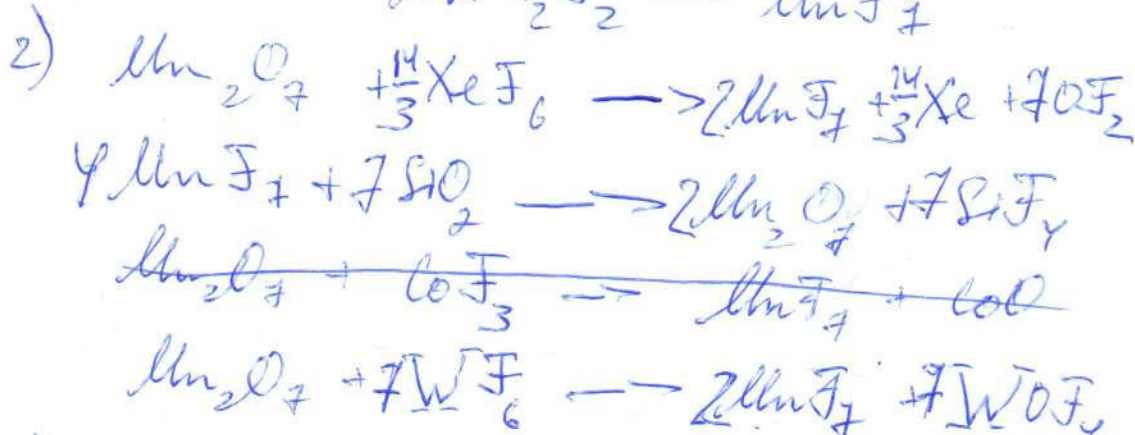 ₂ ₂ MnF₇
2) Mn₂O₇ + 14/3 XeF₆ —> 2MnF₇ + 14/3 Xe + 7OF₂
4MnF₇ + 7SiO₂ —> 2Mn₂O₇ + 7SiF₄
Mn₂O₇ + CoF₃ —> MnF₇ + CoO
Mn₂O₇ + 7WF₆ —> 2MnF₇ + 7WOF₄